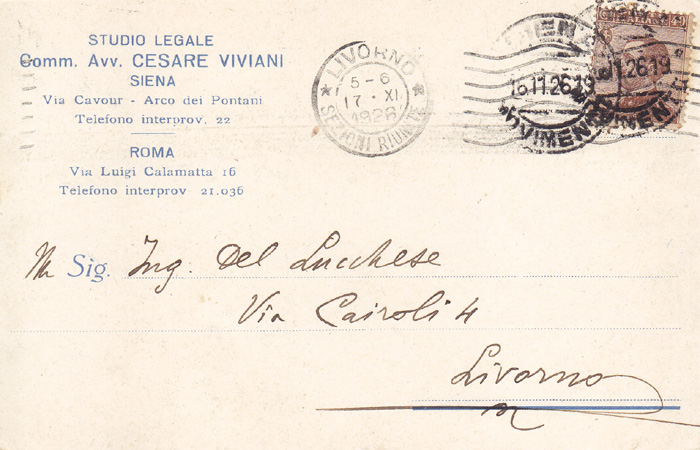 STUDIO LEGALE
Comm. Avv. CESARE VIVIANI
SIENA
Via Cavour - Arco dei Pontani
Telefono interprov. 22
ROMA
Via Luigi Calamatta 16
Telefono interprov 21.036
LIVORNO
5-6
17 · XI
1926
SEZIONI RIUNITE
16.11.26.19
1.26.19
Sig. Ing. Del Lucchese
Via Cairoli 4
Livorno